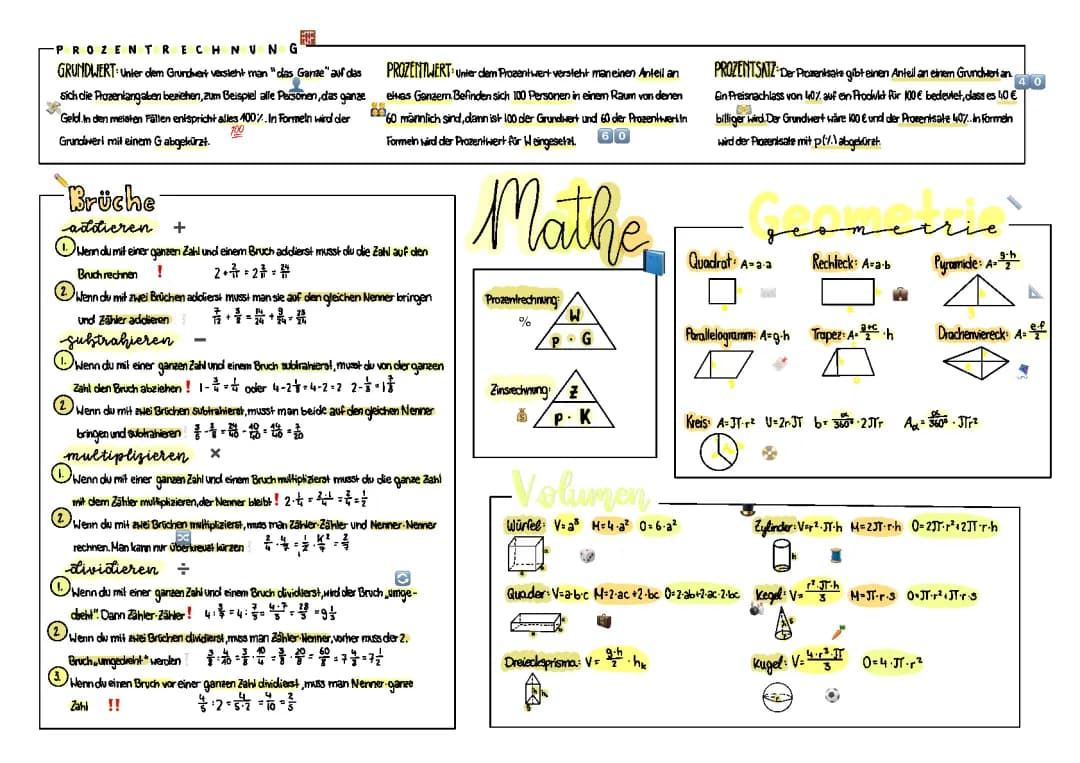 PROZENTRECHNUNG
GRUNDWERT: Unter dem Grundwert versteht man "das Ganze" auf das
sich die Prozentangaben beziehen, zum Beispiel alle Personen, das ganze
Geld. In den meisten Fällen entspricht alles 100%. In Formeln wird der
Grundwert mit einem G abgekürzt.
100
PROZENTWERT: Unter dem Prozentwert versteht man einen Anteil an
etwas Ganzem. Befinden sich 100 Personen in einem Raum von denen
60 männlich sind, dann ist 100 der Grundwert und 60 der Prozentwert. In
Formeln wird der Prozentwert für W eingesetzt.
60
PROZENTSATZ: Der Prozentsatz gibt einen Anteil an einem Grundwert an.
40
Ein Preisnachlass von 40% auf ein Produkt für 100€ bedeutet, dass es 40€
billiger wird. Der Grundwert wäre 100€ und der Prozentsatz 40%. In Formeln
wird der Prozentsatz mit p(%) abgekürzt.
Brüche
addieren +
1. Wenn du mit einer ganzen Zahl und einem Bruch addierst musst du die Zahl auf den
Bruch rechnen ! 2 + 2/11 = 2 2/11 = 24/11
2 Wenn du mit zwei Brüchen addierst musst man sie auf den gleichen Nenner bringen
und Zähler addieren ! 7/12 + 3/8 = 14/24 + 9/24 = 23/24
subtrahieren −
1. Wenn du mit einer ganzen Zahl und einem Bruch subtrahierst, musst du von der ganzen
Zahl den Bruch abziehen ! 1 - 3/4 = 1/4 oder
2 Wenn du mit zwei Brüchen subtrahierst, musst man beide auf den gleichen Nenner
bringen und subtrahieren ! 3/5 - 2/8 = 24/40 - 10/40 = 14/40 = 7/20
multiplizieren ×
1. Wenn du mit einer ganzen Zahl und einem Bruch multiplizierst musst du die ganze Zahl
mit dem Zähler multiplizieren, der Nenner bleibt ! 2 · 1/4 = 2·1/4 = 2/4 = 1/2
2 Wenn du mit zwei Brüchen multiplizierst, muss man Zähler·Zähler und Nenner·Nenner
rechnen. Man kann nur überkreuz kürzen !
dividieren ÷
1. Wenn du mit einer ganzen Zahl und einem Bruch dividierst, wird der Bruch „umge-
dreht". Dann Zähler·Zähler ! 4 : 3/7 = 4 · 7/3 = 4·7/3 = 28/3 = 9 1/3
2 Wenn du mit zwei Brüchen dividierst, muss man Zähler·Nenner, vorher muss der 2.
Bruch „umgedreht" werden ! 3/8 : 4/10 = 3/8 · 10/4
3 Wenn du einen Bruch vor einer ganzen Zahl dividierst, muss man Nenner·ganze
Zahl !! 4/5 : 2 = 4/5·2 = 4/10 = 2/5
Mathe
Prozentrechnung:
%
W
p · G
Zinsrechnung:
Z
p · K
Geometrie
geometrie
Quadrat: A=a·a
Rechteck: A=a·b
Pyramide: A=g·h/2
Parallelogramm: A=g·h
Trapez: A=a+c/2 · h
Drachenviereck: A=e·f/2
Kreis: A=π·r² U=2rπ b=α/360° · 2πr Aα=α/360° · πr²
Volumen
Würfel: V=a³ M=4·a² O=6·a²
Zylinder: V=r²·π·h M=2π·r·h O=2π·r²+2π·r·h
h
Quader: V=a·b·c M=2·ac+2·bc O=2·ab+2·ac·2·bc
Kegel: V=r²·π·h/3 M=π·r·s O=π·r²+π·r·s
Dreiecksprisma: V=g·h/2 · hk
Kugel: V=4·r³·π/3 O=4·π·r²